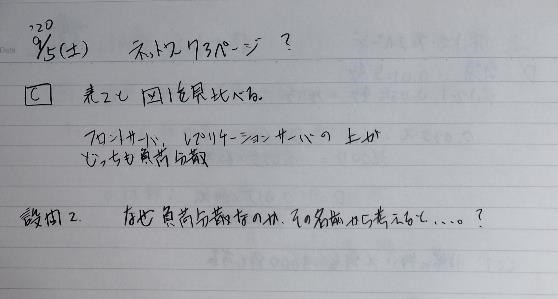 '20
9/5(土) ネットスク3ページ ?
C 表2と図1を見比べる。
フロントサーバ, レプリケーションサーバの上が
どっちも負荷分散
設問2. なぜ負荷分散なのか, その名前から考えると....。?